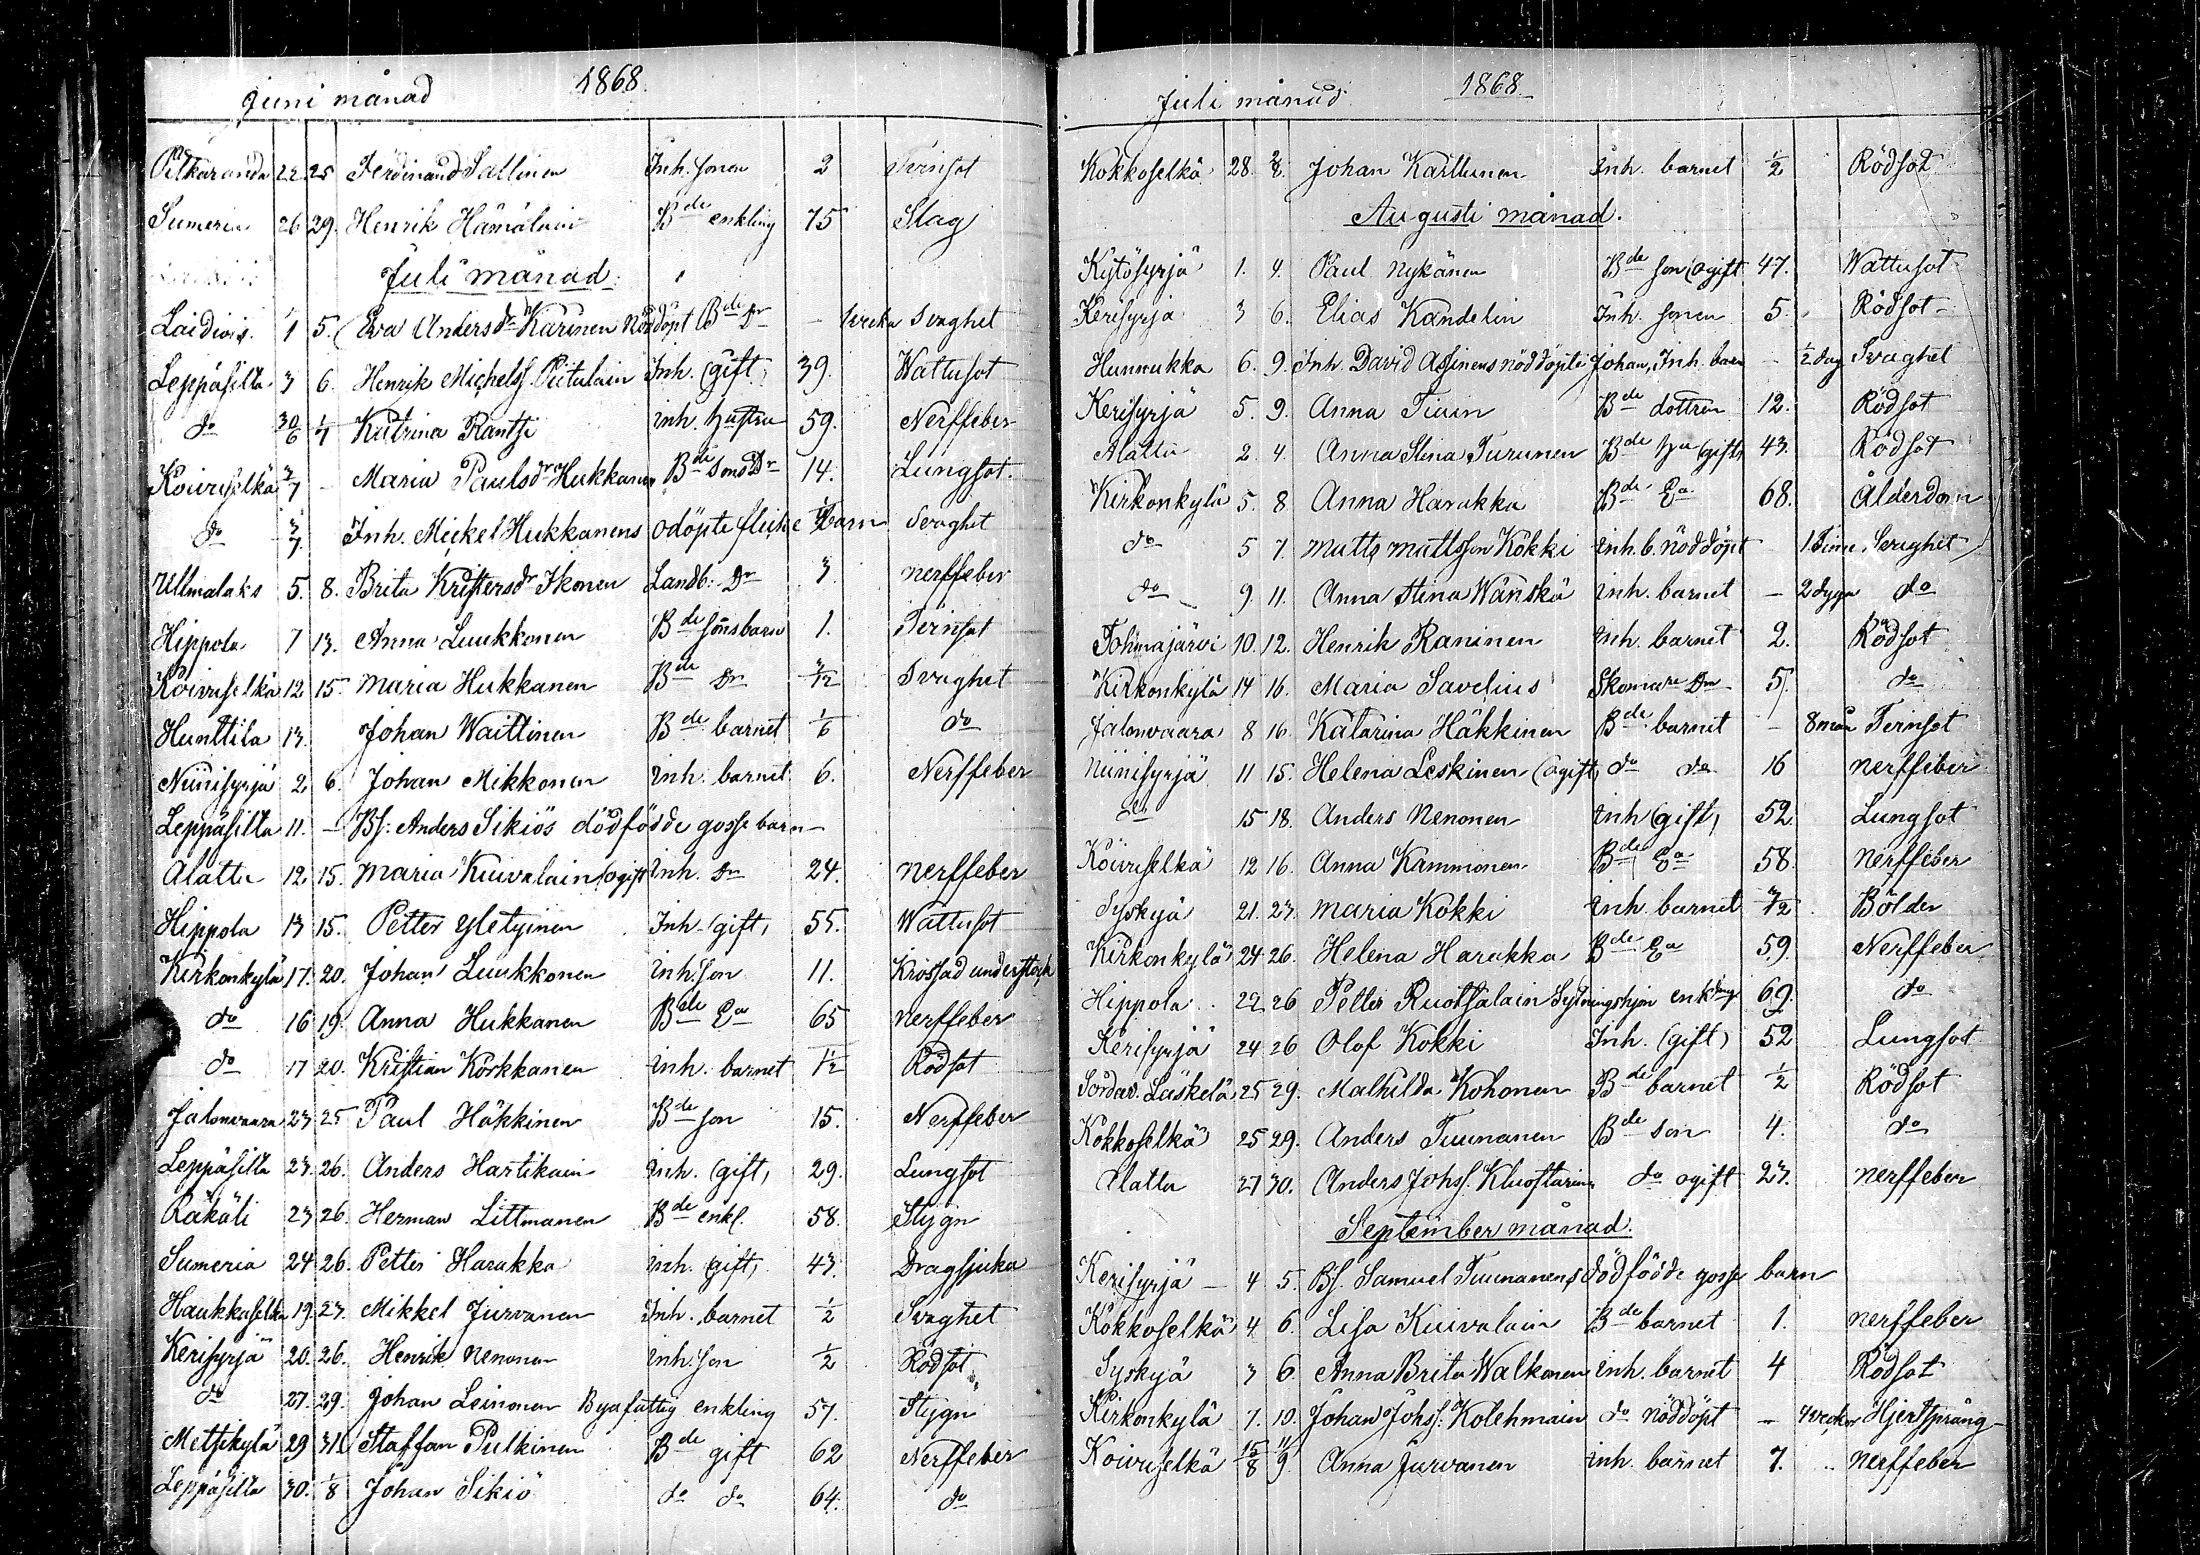 Juni månad 1868.
Pitkäranda 22. 25 Ferdinand Sallinen Inh. sonen 2 Ternsot
Sumeria 26 29. Henrik Hämäläin Bde enkling 75 Slag
Juli månad.
Laidiois. 1 5. Eva Andersdr Karinen Nöddöpt Bde Dr - 1 vecka Svaghet
Leppäsilta 3 6. Henrik Michelss. Piitulain Inh. (gift) 39. Wattusot
do 30/6 1/7 Katrina Rantsi inh. hustru 59. Nerffeber
Koivuselkä 3/7 - Maria Paulsdr Hukkanen Bde Sons Dr 14. Lungsot.
do 3/7. - Inh. Mickel Hukkanens odöpte flicke barn Svaghet
Ullmalaks 5. 8. Brita Kristersdr Ikonen Landb: Dr 3. nerffeber
Hippola 7 13. Anna Luukkonen Bde sonsbarn 1. Ternsot
Koivuselkä 12 15. Maria Hukkanen Bde Dr 3/12 Svaghet
Hunttila 13. Johan Waittinen Bde barnet 1/6 do
Niinisyrjä 2 6. Johan Mikkonen inh. barnet 6. Nerffeber
Leppäsilta 11. - Bs: Anders Sikiös dödfödde gosse barn -
Alattu 12 15. Maria Kuivalain (ogift inh. Dr 24. nerffeber
Hippola 13 15. Petter Yletyinen Inh. (gift, 55. Wattusot
Kirkonkylä 17. 20. Johan Luukkonen inh. son 11. Krossad under stock
do 16 19. Anna Hukkanen Bde Ea 65 nerffeber
do 17 20. Kristian Korkkanen inh. barnet 1/2 Rödsot
Jalonvaara 23 25 Paul Häkkinen Bde son 15. Nerffeber
Leppäsilta 23. 26. Anders Hartikain inh. (gift, 29. Lungsot
Räkäli 23 26. Herman Littmanen Bde enkl. 58. Stygn
Sumeria 24 26. Petter Harakka inh. (gift, 43. Dragsjuka
Haukkaselkä 19. 23. Mikkel Jurvanen Inh. barnet 1/2 Svaghet
Kerisyrjä 20. 26. Henrik Nenonen inh. son 1/2 Rödsot
do 27. 29. Johan Leinonen Byafattig enkling 57. Stygn
Metsikylä 29 31. Staffan Pulkinen Bde gift 62 Nerffeber
Leppäsilta 30. 1/8 Johan Sikiö do do 64. do
Juli månad 1868.
Kokkoselkä 28. 2/8. Johan Karttunen Inh. barnet 1/2 Rödsot
Augusti månad.
Kytösyrjä 1. 4. Paul Nykänen Bde son (ogift 47. Wattusot
Kerisyrjä 3 6. Elias Kandelin Inh. sonen 5. Rödsot
Hunnukka 6. 9. Inh. David Assinens nöddöpte Johan, Inh. barn - 1/2 dag Svaghet
Kerisyrjä 5. 9. Anna Tuin Bde dottren 12. Rödsot
Alattu 2. 4. Anna Stina Turunen Bde hu (gift, 43. Rödsot
Kirkonkylä 5. 8 Anna Harakka Bde Ea 68. Ålderdom
do 5 7. Matts Mattsson Kokki inh. b. nöddöpt - 1 Timu Svaghet
do 9. 11. Anna Stina Wänskä inh. barnet - 2 dygn do
Tohmajärvi 10. 12. Henrik Raninen inh. barnet 2. Rödsot
Kirkonkylä 14 16. Maria Savelius Skomare Dr 5. do
Jalonvaara 8 16. Katarina Häkkinen Bde barnet - 8 mån Ternsot
Niinisyrjä 11 15. Helena Leskinen (ogift, do do 16 nerffeber
do 15 18. Anders Nenonen inh (gift, 52. Lungsot
Koivuselkä 12 16. Anna Kammonen Bde Ea 58. nerffeber
Syskyä 21. 23. Maria Kokki inh. barnet 3/12 Bölder
Kirkonkylä 24 26. Helena Harakka Bde Ea 59. Nerffeber
Hippola 22 26 Petter Ruotsalain Sytningshjon enkling 69. do
Kerisyrjä 24 26 Olof Kokki Inh. (gift) 52 Lungsot
Sordav. Läskelä 25 29. Mathilda Kohonen Bde barnet 1/2 Rödsot
Kokkoselkä 25 29. Anders Tuunanen Bde son 4. do
Alattu 27 30. Anders Johss. do ogift 23. nerffeber
September månad.
Kerisyrjä - 4 5. Bs. Samuel Tuunanens dödfödde gosse barn
Kokkoselkä 4 6. Lisa Kuivalain Bde barnet 1. nerffeber
Syskyä 3 6. Anna Brita Walkonen inh. barnet 4 Rödsot
Kirkonkylä 7. 10. Johan Johss. Kolehmain do nöddöpt - 4 veckor Hjertsprång
Koivuselkä 15/8 11/9. Anna Jurvanen inh. barnet 7. nerffeber